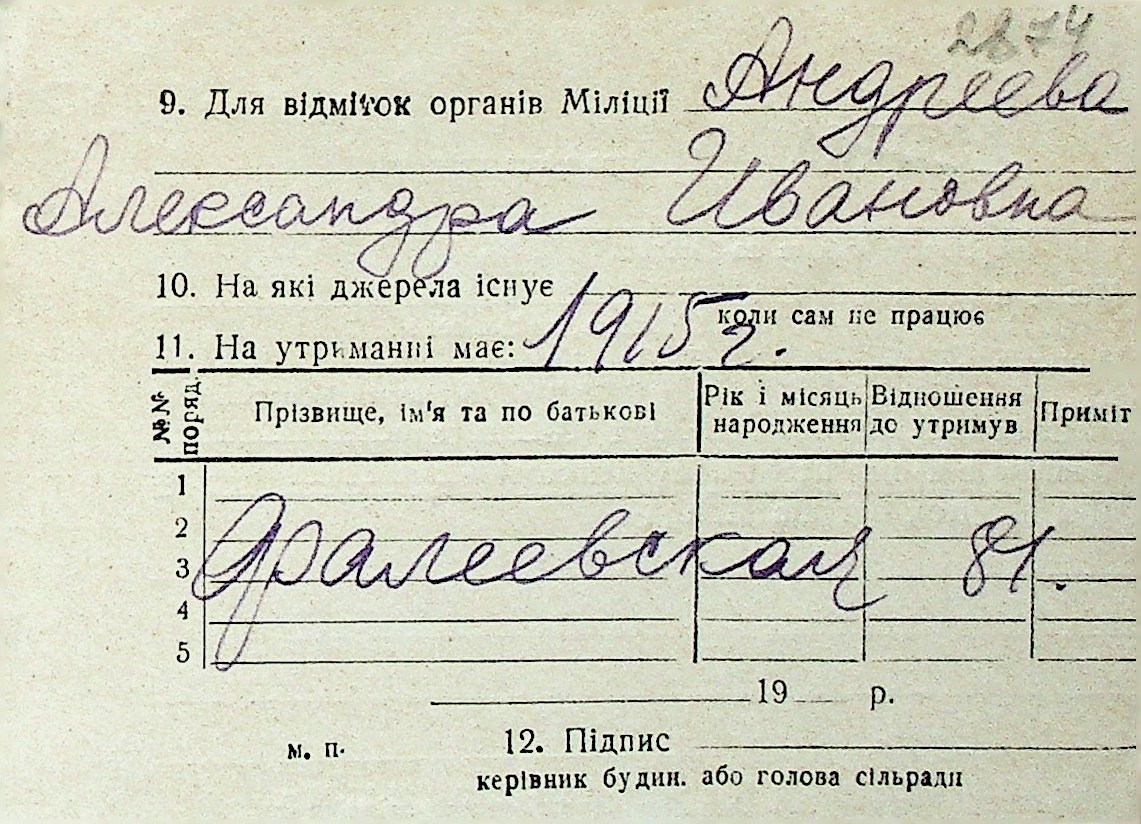 2874
9. Для відміток органів Міліції Андреева
Александра Ивановна
10. На які джерела існує
коли сам не працює
11. На утриманні має: 1915 г.
№№ поряд. Прізвище, ім'я та по батькові Рік і місяць народження Відношення до утримув Приміт
1
2
3 Фралеевская 81.
4
5
19 р.
м. п. 12. Підпис
керівник будин. або голова сільради